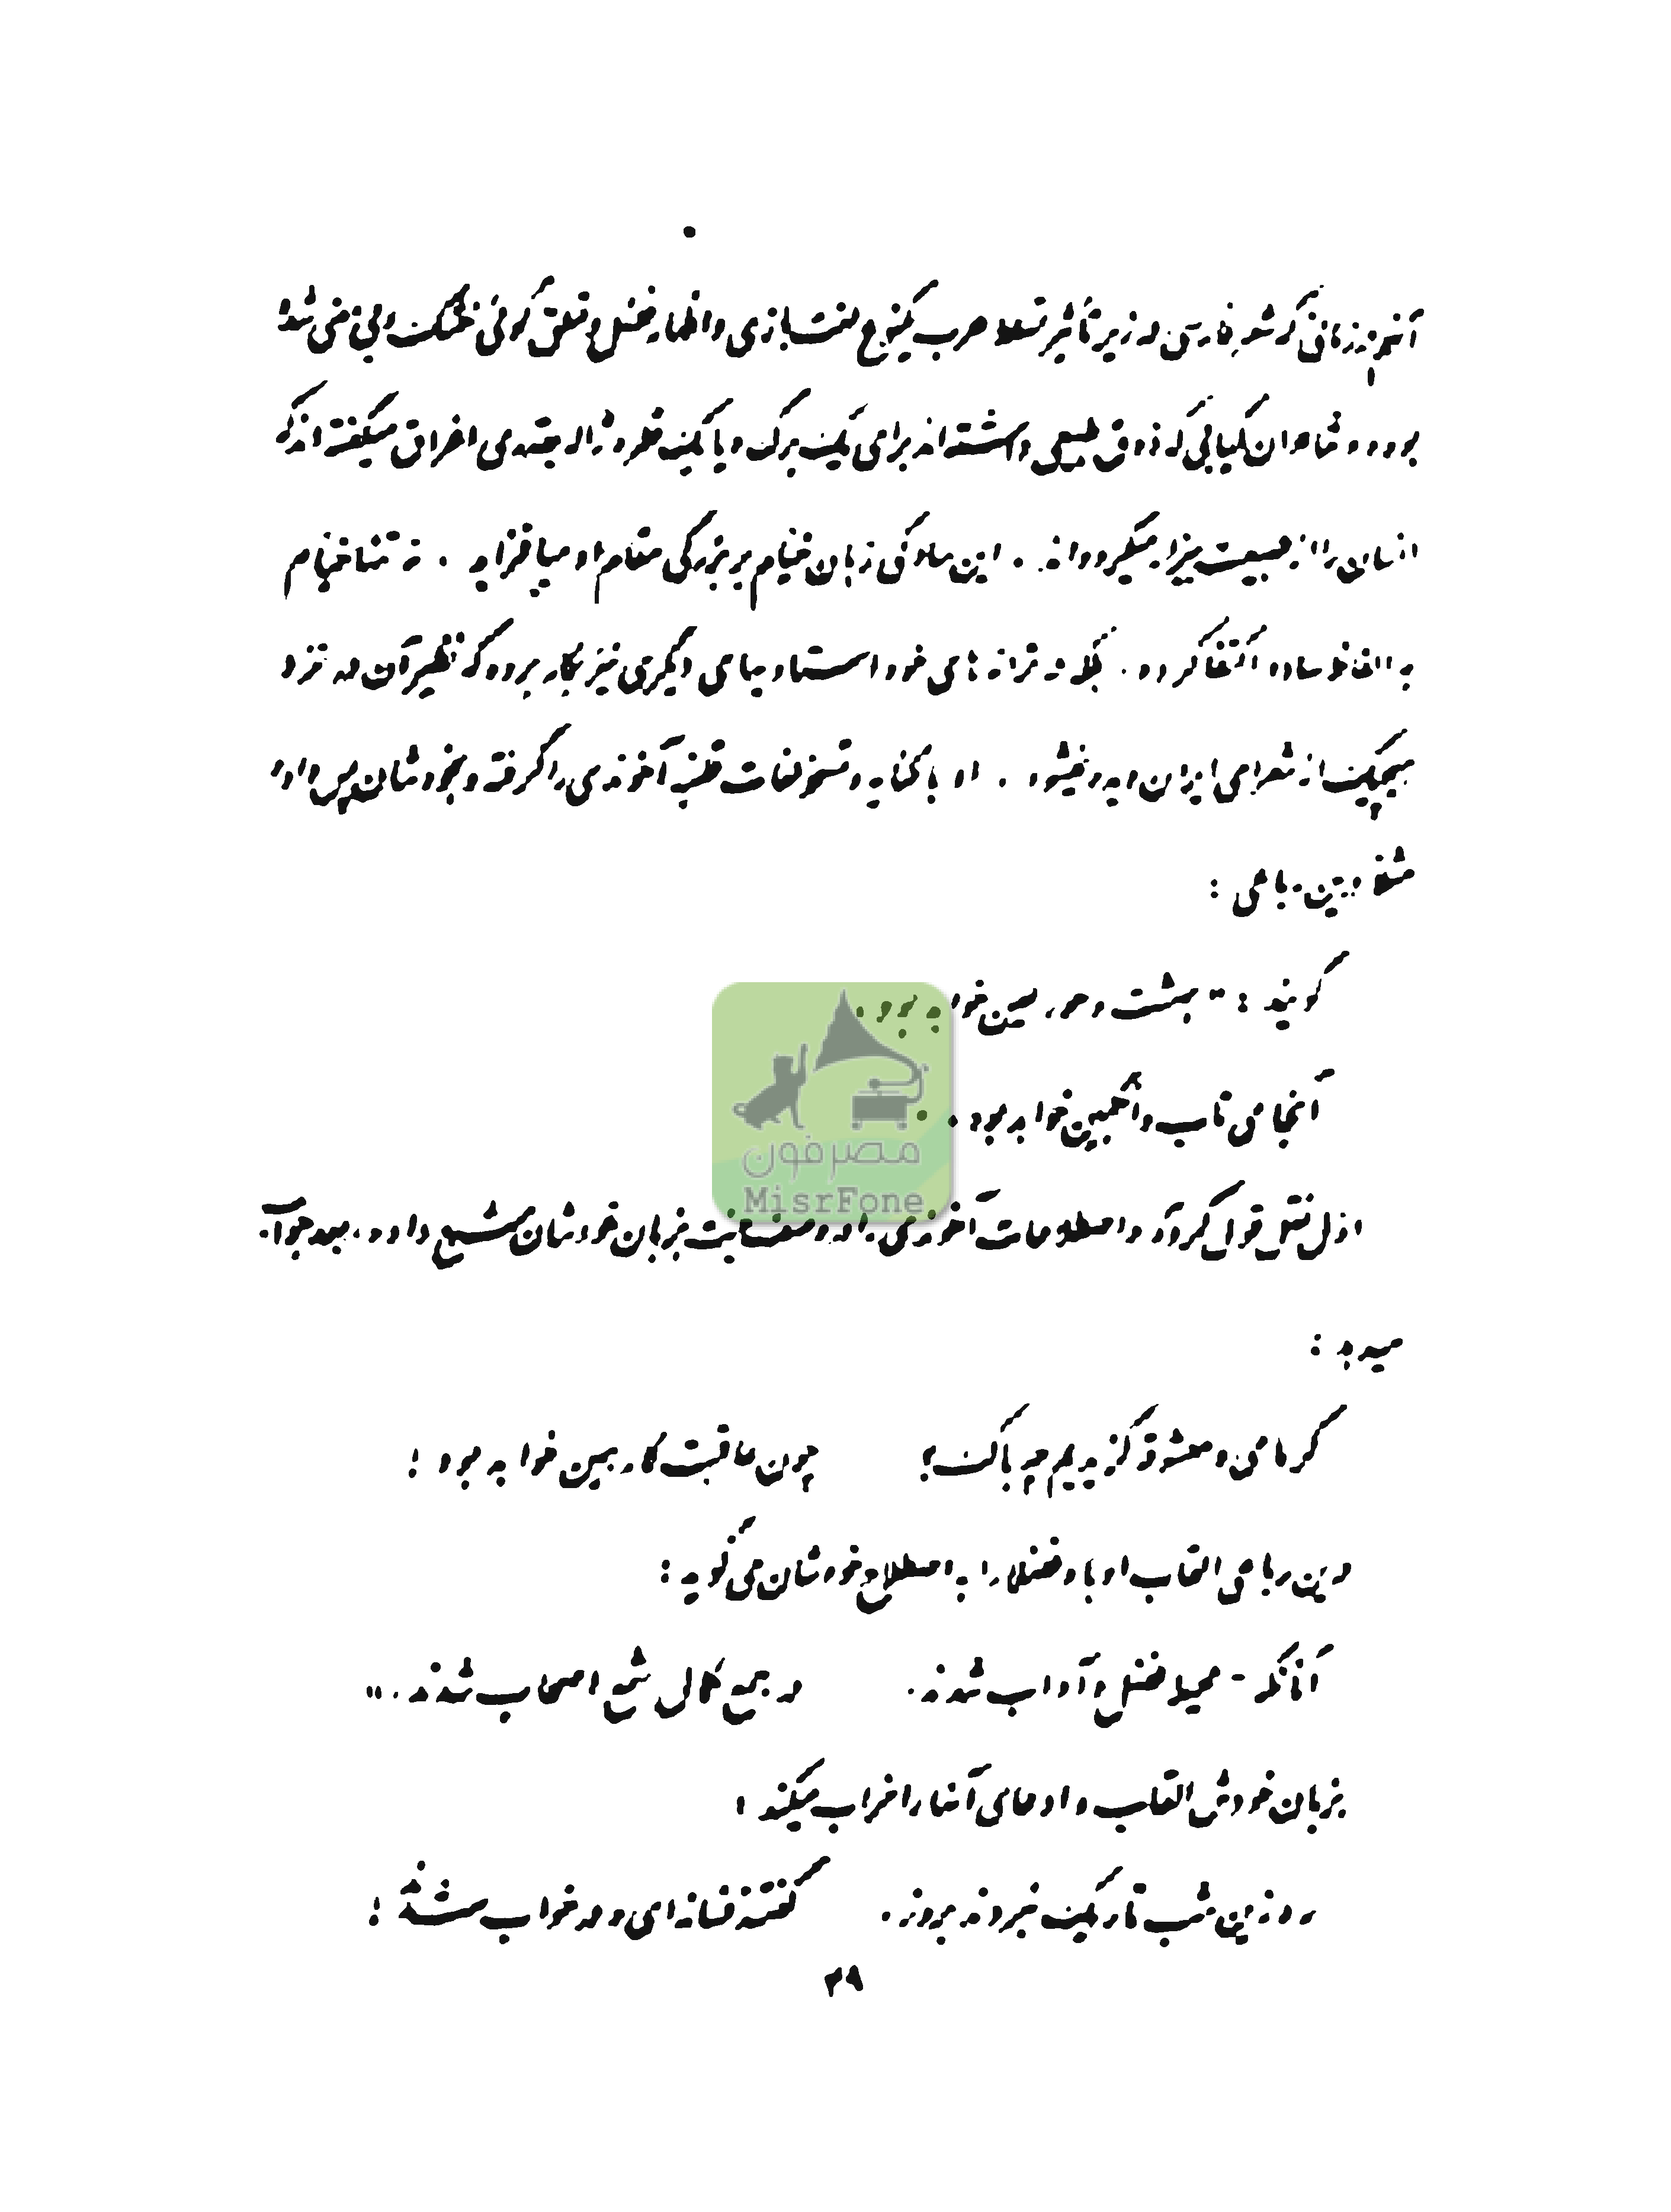 آنهم در زمانی که شعر فارسی در زیر تأثیر تسلط عرب یکنوع لغت بازی و اظهار فضل و تملق گوئی خشک و بی معنی شده
بوده و شاعران کمیابی که ذوق طبیعی داشته اند برای یک برگ و یا یک قطره ژاله بقدری اغراق میگفته اند که
انسان را از طبیعت بیزار میکرده اند. این سادگی زبان خیام بر بزرگی مقام او میافزاید. نه تنها خیام
به الفاظ ساده اکتفا کرده. بلکه در ترانه های خود استادیهای دیگری نیز بکار برده که نظیر آن در نزد
هیچیک از شعرای ایران دیده نمیشود. او با کنایه و تمسخر لغات قلنبه آخوندی را گرفته و بخودشان پس داده
مثلا درین رباعی :
گویند : "بهشت و حور عین خواهد بود،
آنجا می ناب و انگبین خواهد بود."
اول نقل قول کرده و اصطلاحات آخوندی را در وصف جنت بزبان خودشان شرح داده، بعد جواب
میدهد :
گر ما می و معشوقه گزیدیم چه باک؟ چون عاقبت کار همین خواهد بود!
درین رباعی القاب ادبا و فضلا را به اصطلاح خودشان می گوید :
آنانکه "محیط فضل و آداب شدند، در جمع کمال شمع اصحاب شدند."
بزبان خودش القاب و ادعای آنها را خراب میکند :
ره زین شب تاریک نبردند بروز، گفتند فسانه ای و در خواب شدند!
۴۹
مصرفون
MisrFone